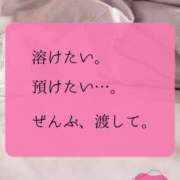 溶けたい。
預けたい…。
ぜんぶ、渡して。